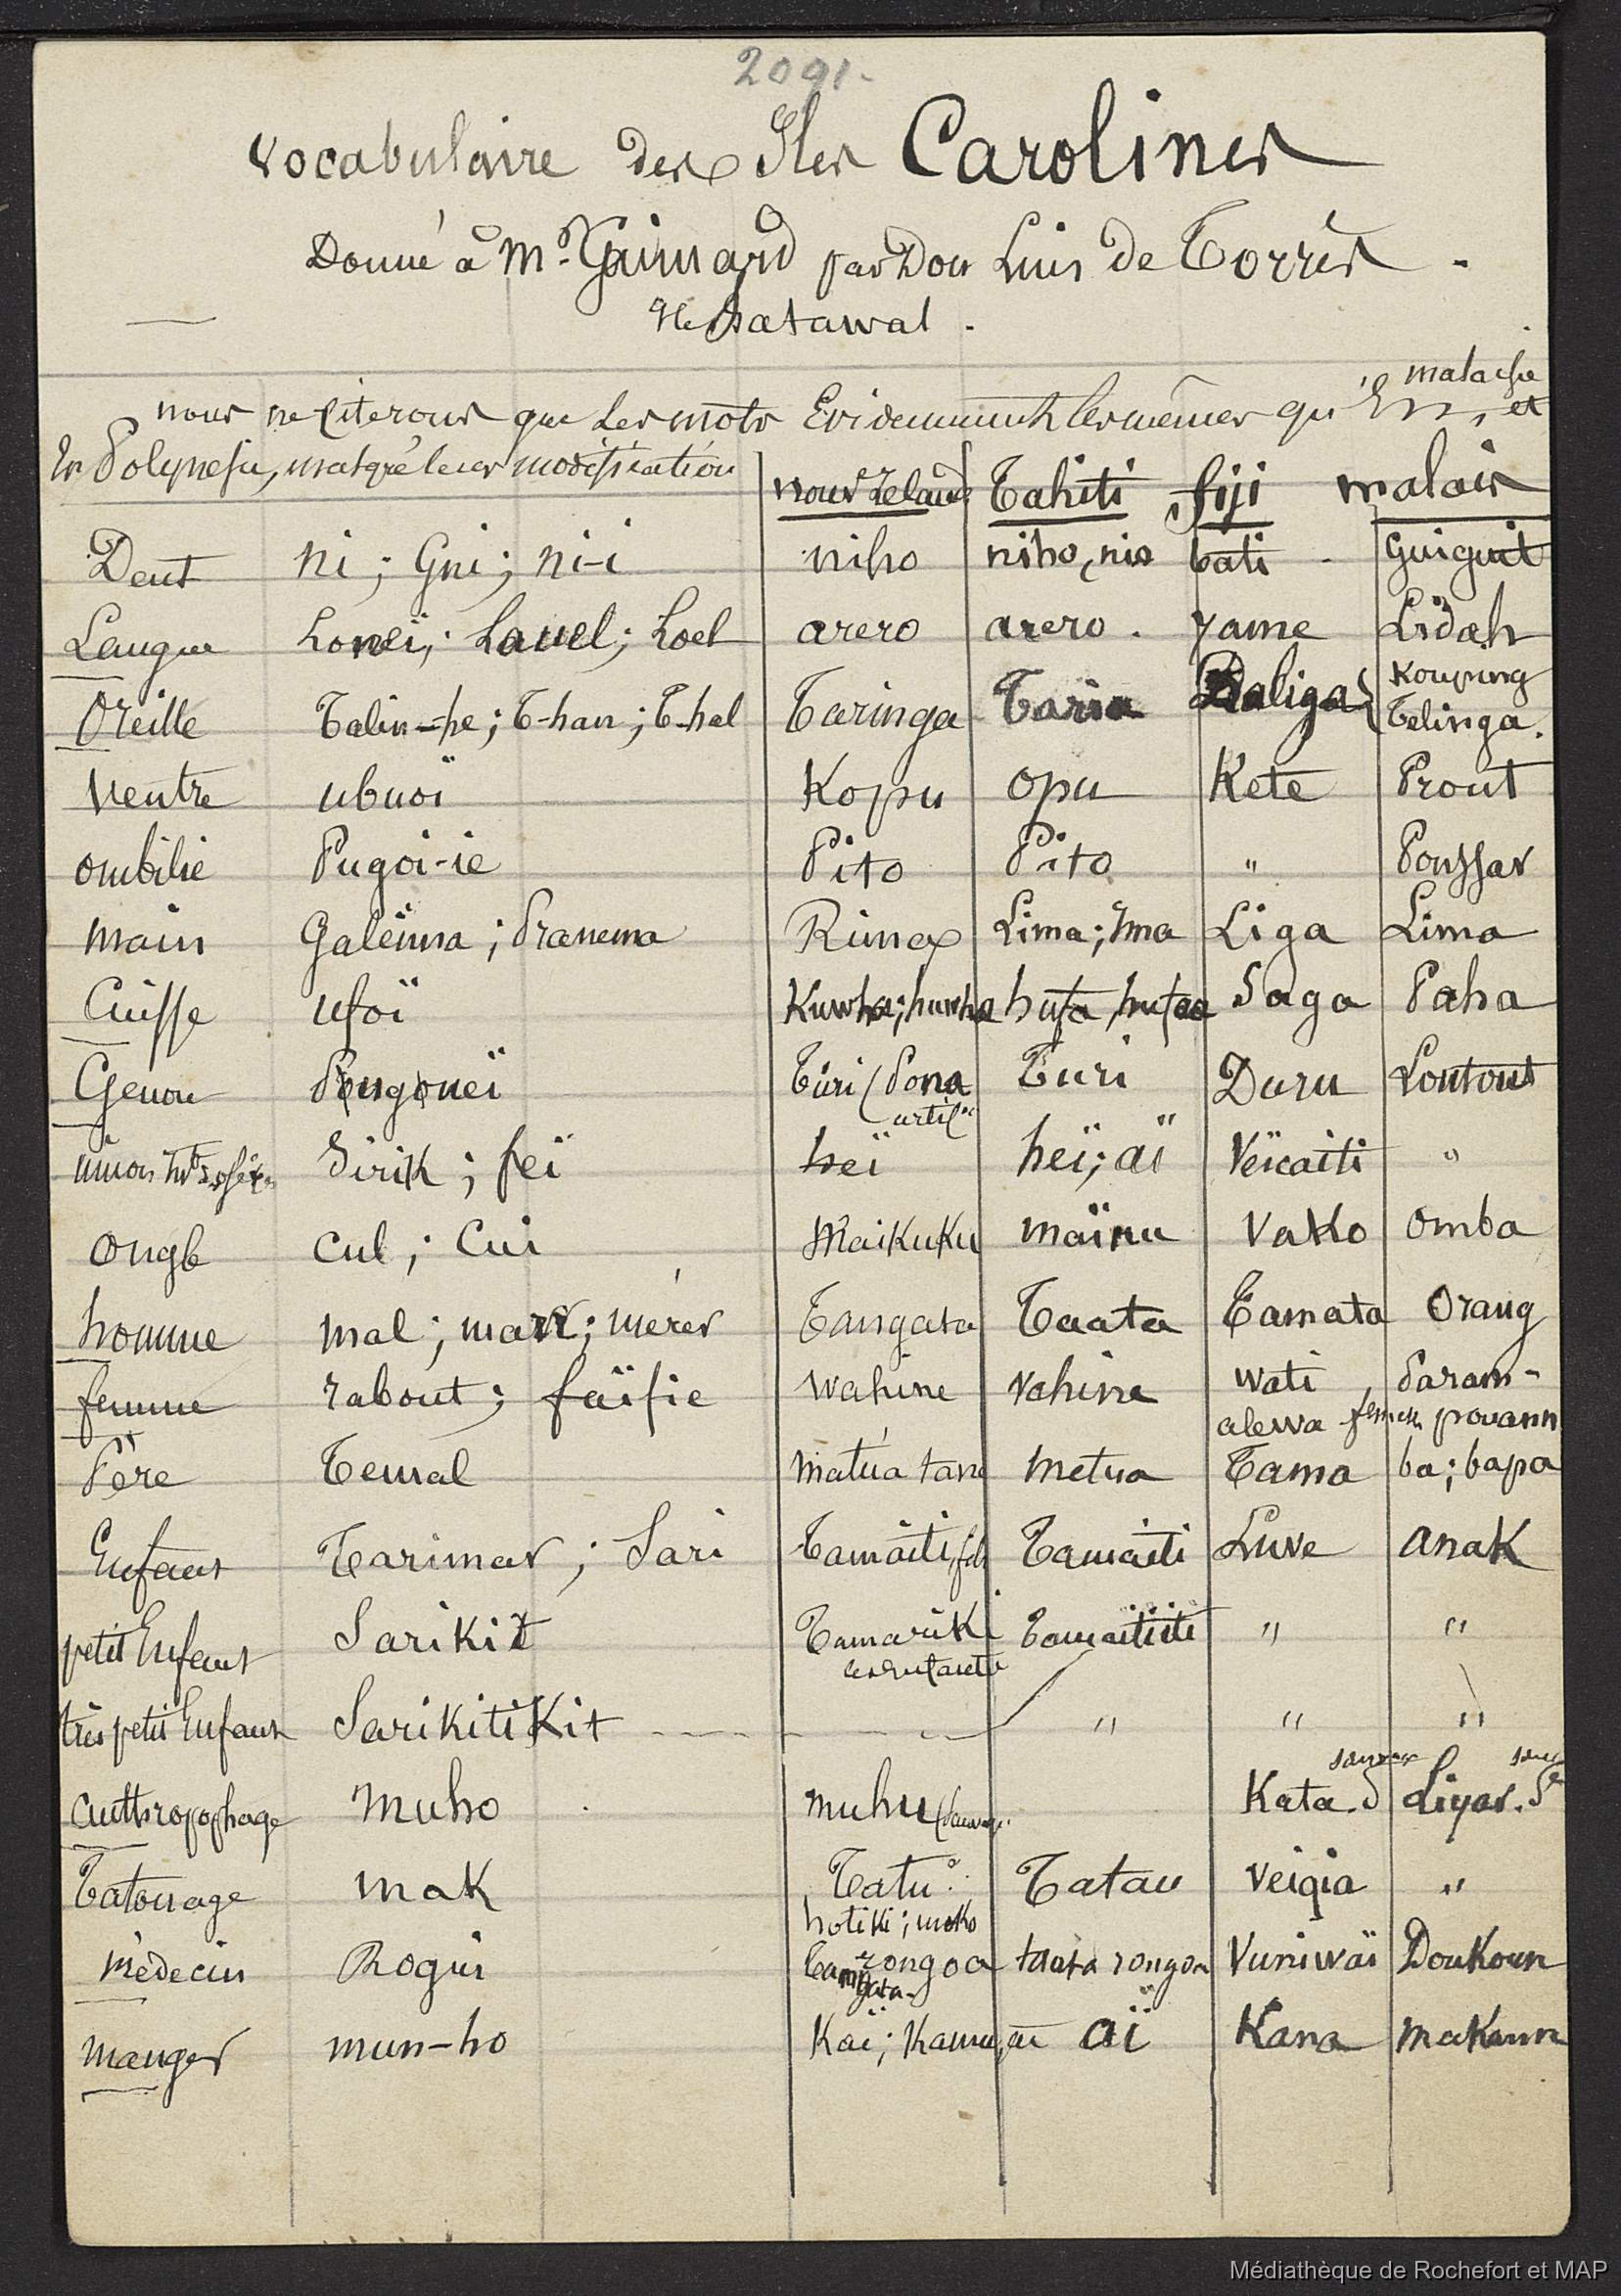 2091.
Vocabulaire des Iles Carolines
Donné à Mr. Gaimard par Don Luis de Torrès.
Ile Satawal.
malaisie
nous ne citerons que les mots Evidemment les mêmes qu'En, et
En Polynesie, malgré leur modification
nouv Zeland Tahiti fiji malais
Dent ni; Gni; ni-i niho niho, nio bati Guiguit
Langue Loneï; Lauel; Loel arero arero. yame Lidah
Oreille Talin-he; T-han; T-hal Taringa Taria Daliga Kouping Telinga.
Ventre ubuoï Kopu opu Kete Prout
ombilic Pugoi-ie Pito Pito " Poussar
main Galeima; Pranema Rima Lima; ima Liga Lima
Cuisse ufoï Kuwha; huwha hufa, hufaa Saga Paha
Genou Pougoueï Turi (Pona Turi Duru Loutout
artic
Sirik; feï heï heï; aï Veïcaiti "
ongle cul; Cui Maikuku maïnu Vako omba
homme mal; marr; mérer Tangata Taata Tamata Orang
femme rabout; faïfie wahine vahine wati, Param-
alewa femelle pouann
Père Temal matúa tane metua Tama ba; bapa
Enfant Tarimar; Sari Tamaiti, fils Tamaiti Luve anak
petit Enfant Sarikit Tamariki Tamaitiiti " "
les enfants
très petit Enfant Sarikitikit " " "
anthropophage muho muhu (sauvage Kata. S Liyar. S
Tatouage mak Tatu Tatau veiqia "
hotiki; moko
médecin Rogui Tangata rongoa taata rongoa Vuniwaï Doukoun
manger mun-ho Kaï; Kamu, aï Kana makann
Médiathèque de Rochefort et MAP